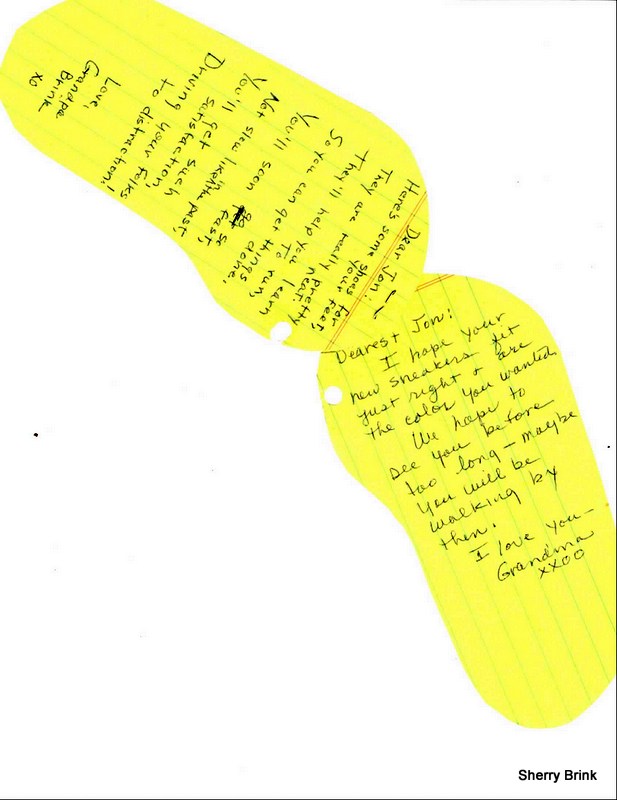 Dear Jon:
Here's some shoes for
your feet,
They are really pretty
neat.
They'll help you learn
To run,
So you can get things
done.
You'll soon go so
fast,
Not slow like in the past,
You'll get such
satisfaction,
Driving your folks
to distraction!
Love,
Grandpa
Brink
xo
Dearest Jon:
I hope your
new sneakers fit
just right & are
the color you wanted.
We hope to
see you before
too long – maybe
you will be
walking by
then.
I love you –
Grandma
xxoo
Sherry Brink